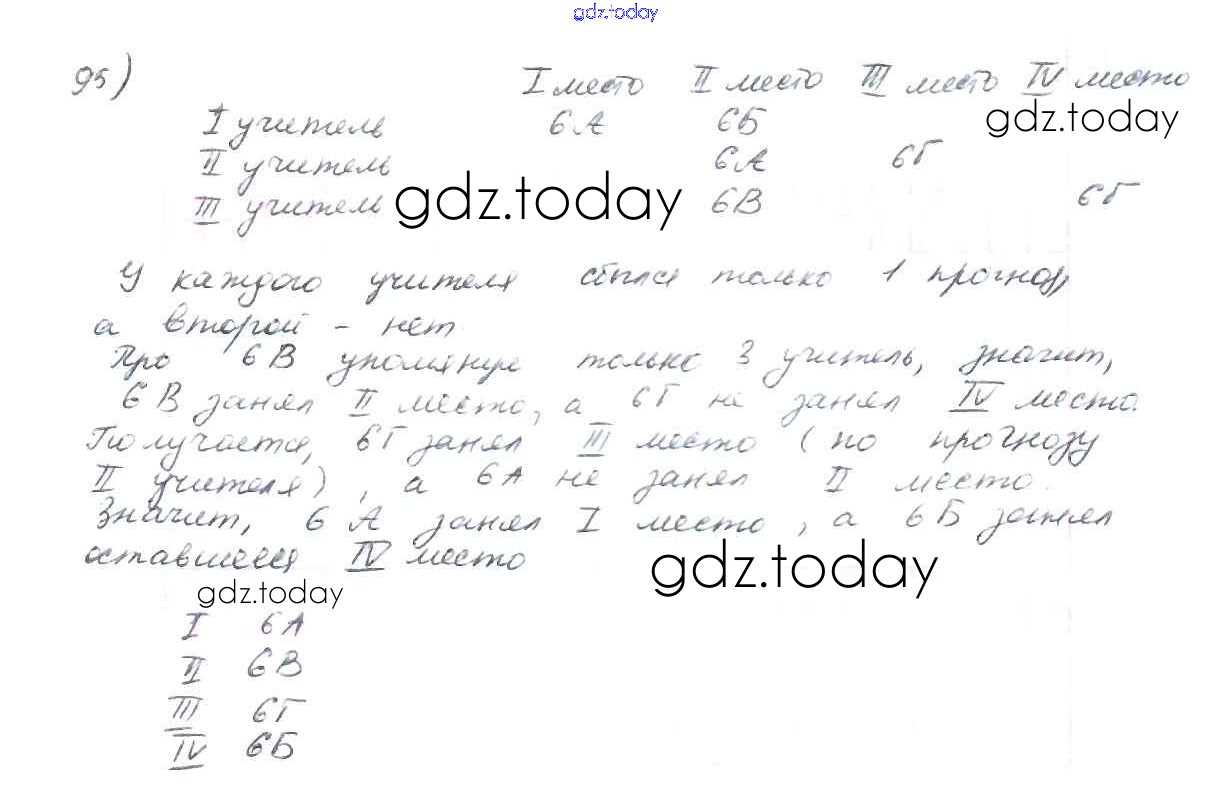 gdz.today
95)
I место II место III место IV место
I учитель 6А 6Б
gdz.today
II учитель 6А 6Г
III учитель 6В 6Г
gdz.today
У каждого учителя сбылся только 1 прогноз,
а второй - нет
Про 6В упомянул только 3 учитель, значит,
6В занял II место, а 6Г не занял IV место.
Получается, 6Г занял III место (по прогнозу
II учителя), а 6А не занял II место.
Значит, 6А занял I место, а 6Б занял
оставшееся IV место
gdz.today
gdz.today
I 6А
II 6В
III 6Г
IV 6Б